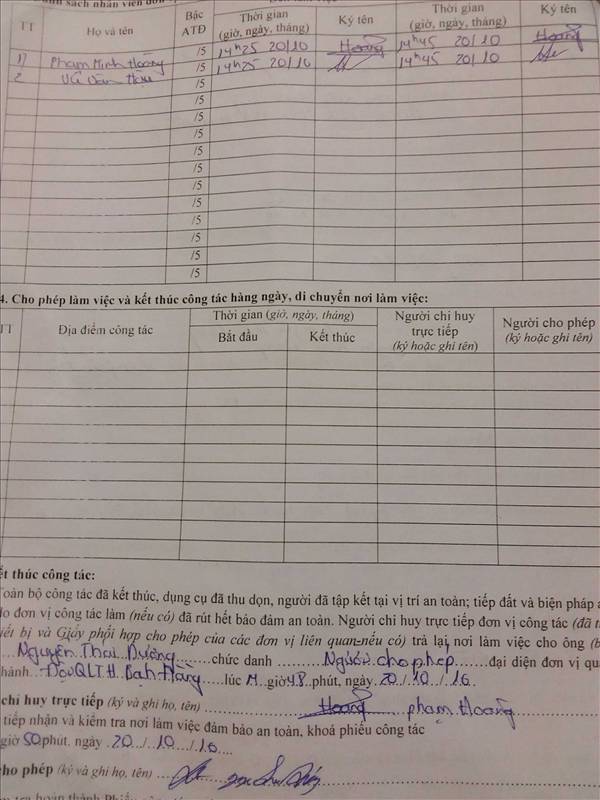 sách nhân viên đơn
TT Họ và tên Bậc ATĐ Thời gian (giờ, ngày, tháng) Ký tên Thời gian (giờ, ngày, tháng) Ký tên
1) Phạm Minh Hoàng /5 14h25 20/10 Hoàng 14h45 20/10 Hoàng
2 Vũ Văn /5 14h25 20/10 14h45 20/10
/5
/5
/5
/5
/5
/5
/5
/5
/5
/5
/5
/5
4. Cho phép làm việc và kết thúc công tác hàng ngày, di chuyển nơi làm việc:
TT Địa điểm công tác Thời gian (giờ, ngày, tháng) Người chỉ huy trực tiếp (ký hoặc ghi tên) Người cho phép (ký hoặc ghi tên)
Bắt đầu Kết thúc
ết thúc công tác:
Toàn bộ công tác đã kết thúc, dụng cụ đã thu dọn, người đã tập kết tại vị trí an toàn; tiếp đất và biện pháp a
do đơn vị công tác làm (nếu có) đã rút hết bảo đảm an toàn. Người chỉ huy trực tiếp đơn vị công tác (đã t
iết bị và Giấy phối hợp cho phép của các đơn vị liên quan-nếu có) trả lại nơi làm việc cho ông (b
Nguyễn Thái Dương chức danh Người cho phép đại diện đơn vị qu
hành Đội QLTH lúc 14 giờ 48 phút, ngày 20/10/16
chỉ huy trực tiếp (ký và ghi họ, tên) Hoàng phạm Hoàng
tiếp nhận và kiểm tra nơi làm việc đảm bảo an toàn, khoá phiếu công tác
giờ 50 phút, ngày 20/10/16
cho phép (ký và ghi họ, tên)